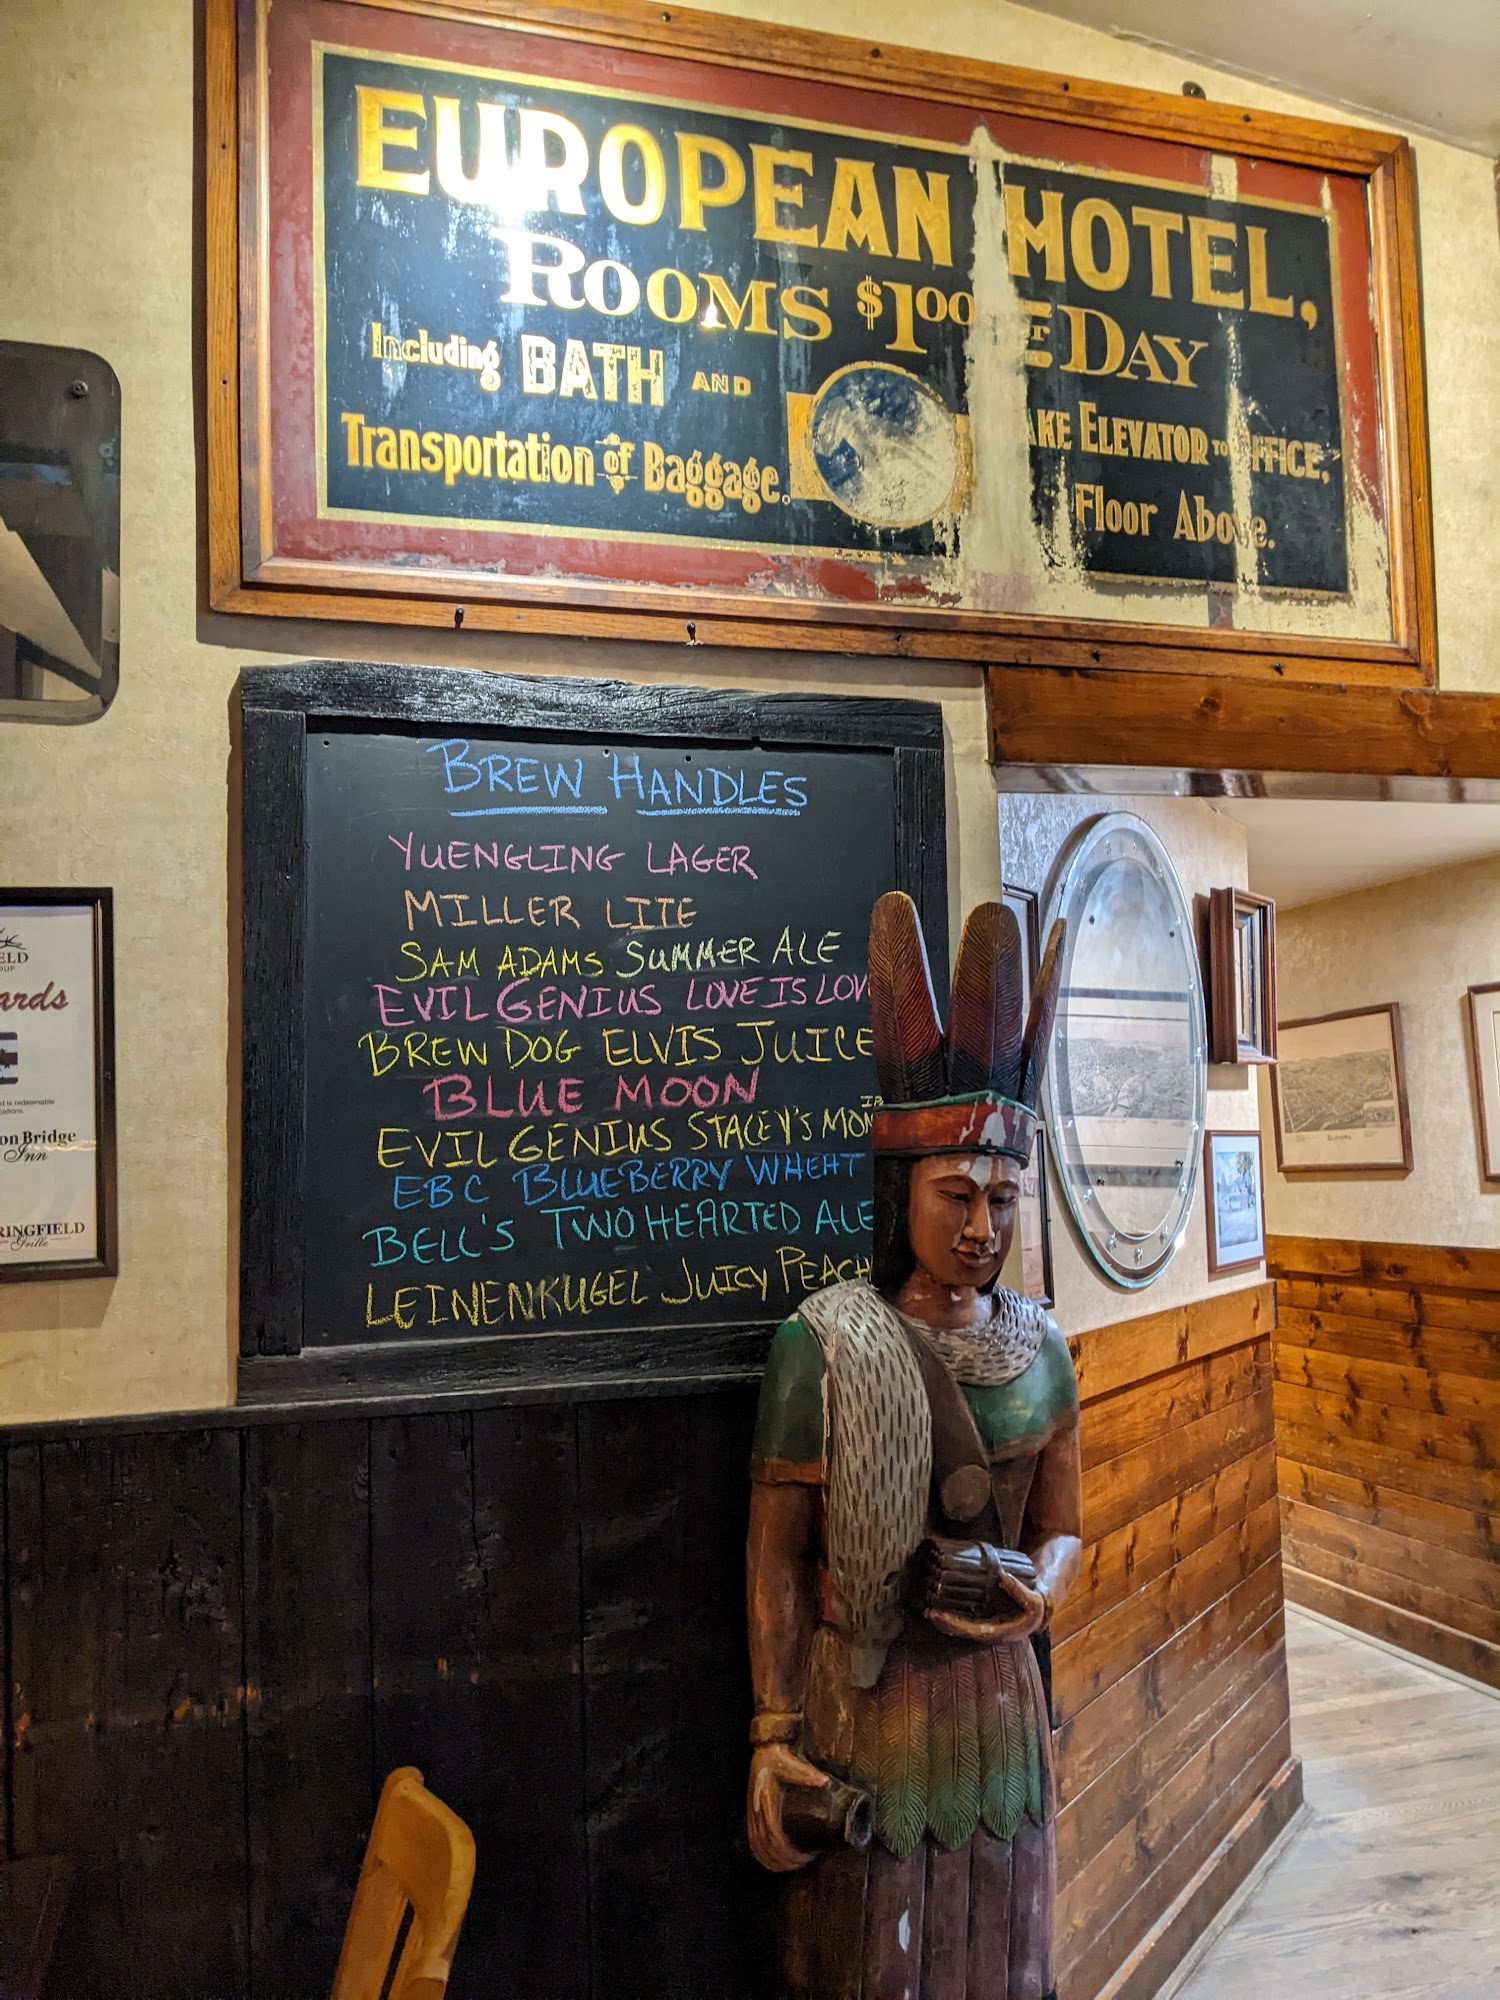 EUROPEAN HOTEL,
ROOMS $1.00 DAY
Including BATH AND
Transportation of Baggage.
ELEVATOR TO OFFICE,
Floor Above.
BREW HANDLES
YUENGLING LAGER
MILLER LITE
SAM ADAMS SUMMER ALE
EVIL GENIUS LOVE IS LOV
BREW DOG ELVIS JUICE
BLUE MOON
EVIL GENIUS STACEY'S MOM
EBC BLUEBERRY WHEAT
BELL'S TWO HEARTED ALE
LEINENKUGEL JUICY PEACH
ELD
ards
d is redeemable
on Bridge
Inn
RINGFIELD
Grille